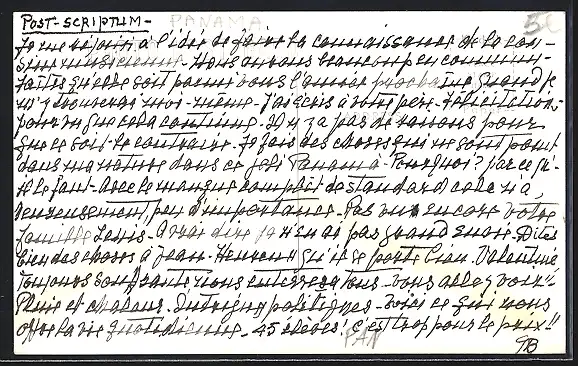 POST-SCRIPTUM - PANAMA 50
Je me réjouis à l'idée de faire la connaissance de la cou-
sine musicienne. Nous avons beaucoup en commun.
qu'elle soit parmi vous l'année prochaine quand je
m'y trouverai moi-même. J'ai écrit à votre père. Félicitations
pour vu que cela continue. Il n'y a pas de raisons pour
que ce soit le contraire. Je fais des choses qui ne sont point
dans ma nature dans ce joli Panama. Pourquoi? parce qu'
il le faut. Avec le manque complet de standard cela n'a,
heureusement, peu d'importance. Pas vu encore votre
famille Lewis. A vrai dire je n'en ai pas grand envie. Dites
bien des choses à Jean. Heureux qu'il se porte bien. Valentine
toujours souffrante nous enterrera tous. Vous allez voir!
Pluie et chaleur. Intrigues politiques. Voici ce que nous
offre la vie quotidienne. 45 élèves! c'est trop pour le prix!!
PAN